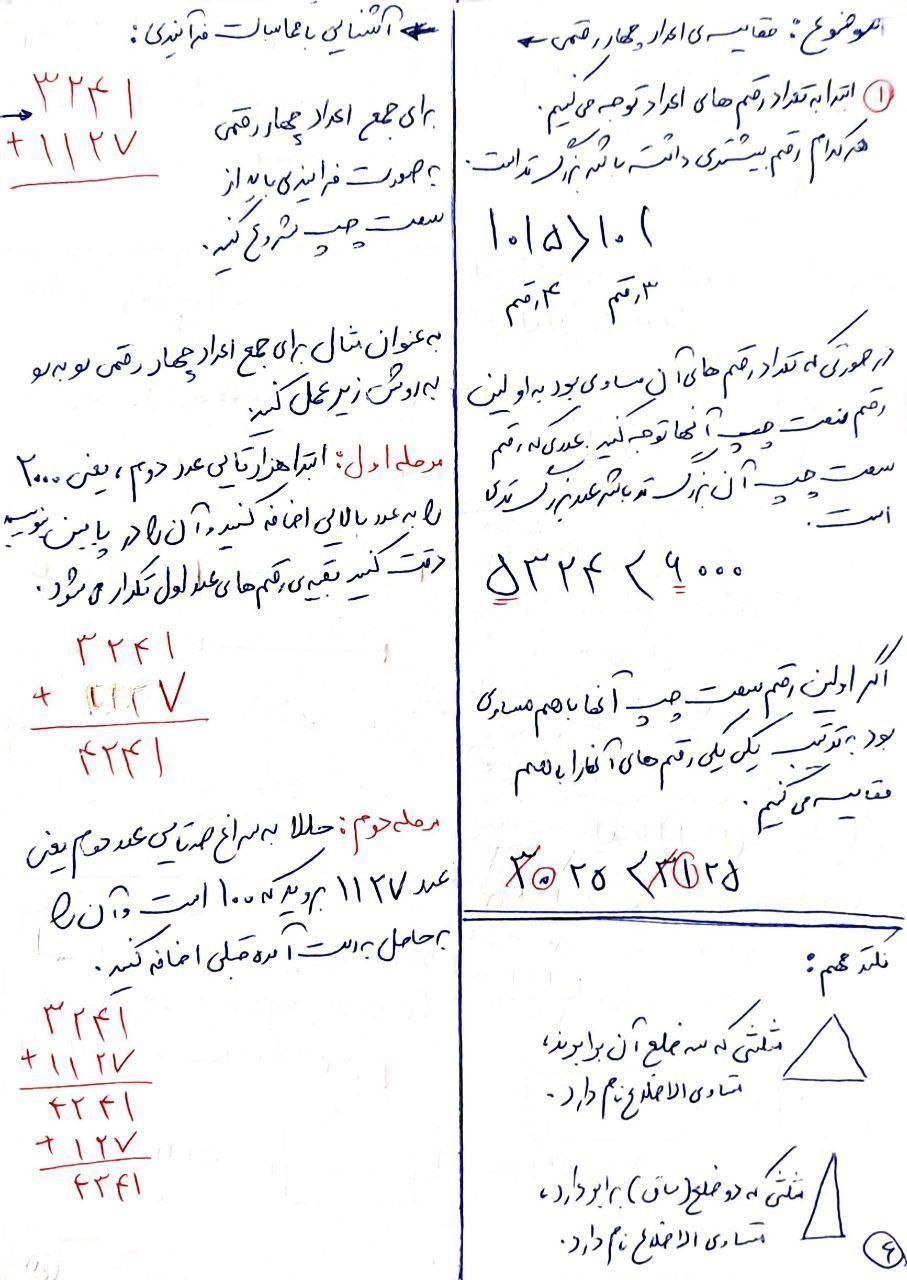 موضوع: مقایسه‌ی اعداد چهار رقمی ←
۱ ابتدا به تعداد رقم های اعداد توجه می‌کنیم.
هر کدام رقم بیشتری داشته باشد بزرگ تر است.
۱۰۱۵ > ۱۰۲
۳ رقم ۴ رقم
در صورتی که تعداد رقم های آن مساوی بود به اولین
رقم سمت چپ آنها توجه کنید. عددی که رقم
سمت چپ آن بزرگ تر باشد عدد بزرگ تری
است.
۵۳۲۴ < ۶۰۰۰
اگر اولین رقم سمت چپ آنها با هم مساوی
بود به ترتیب یکی یکی رقم های آنها را با هم
مقایسه می‌کنیم.
۳۰۲۵ < ۳۱۲۵
نکته مهم:
مثلثی که سه ضلع آن برابرند،
متساوی الاضلاع نام دارد.
مثلثی که دو ضلع (ساق) برابر دارد،
متساوی الاضلاع نام دارد.
۶
← آشنایی با محاسبات فرآیندی:
۳۲۴۱
→
+ ۱۱۲۷
برای جمع اعداد چهار رقمی
به صورت فرایندی باید از
سمت چپ شروع کنید.
به عنوان مثال برای جمع اعداد چهار رقمی رو به رو
به روش زیر عمل کنید.
مرحله اول: ابتدا هزارتایی عدد دوم، یعنی ۲۰۰۰
را به عدد بالایی اضافه کنید و آن را در پایین بنویسید
دقت کنید بقیه‌ی رقم های عدد اول تکرار می‌شود.
۳۲۴۱
+ ۱۱۲۷
۴۲۴۱
مرحله دوم: حالا به سراغ صدتایی عدد دوم یعنی
عدد ۱۱۲۷ بروید که ۱۰۰ است و آن را
به حاصل به دست آمده قبلی اضافه کنید.
۳۲۴۱
+ ۱۱۲۷
۴۲۴۱
+ ۱۲۷
۴۳۴۱